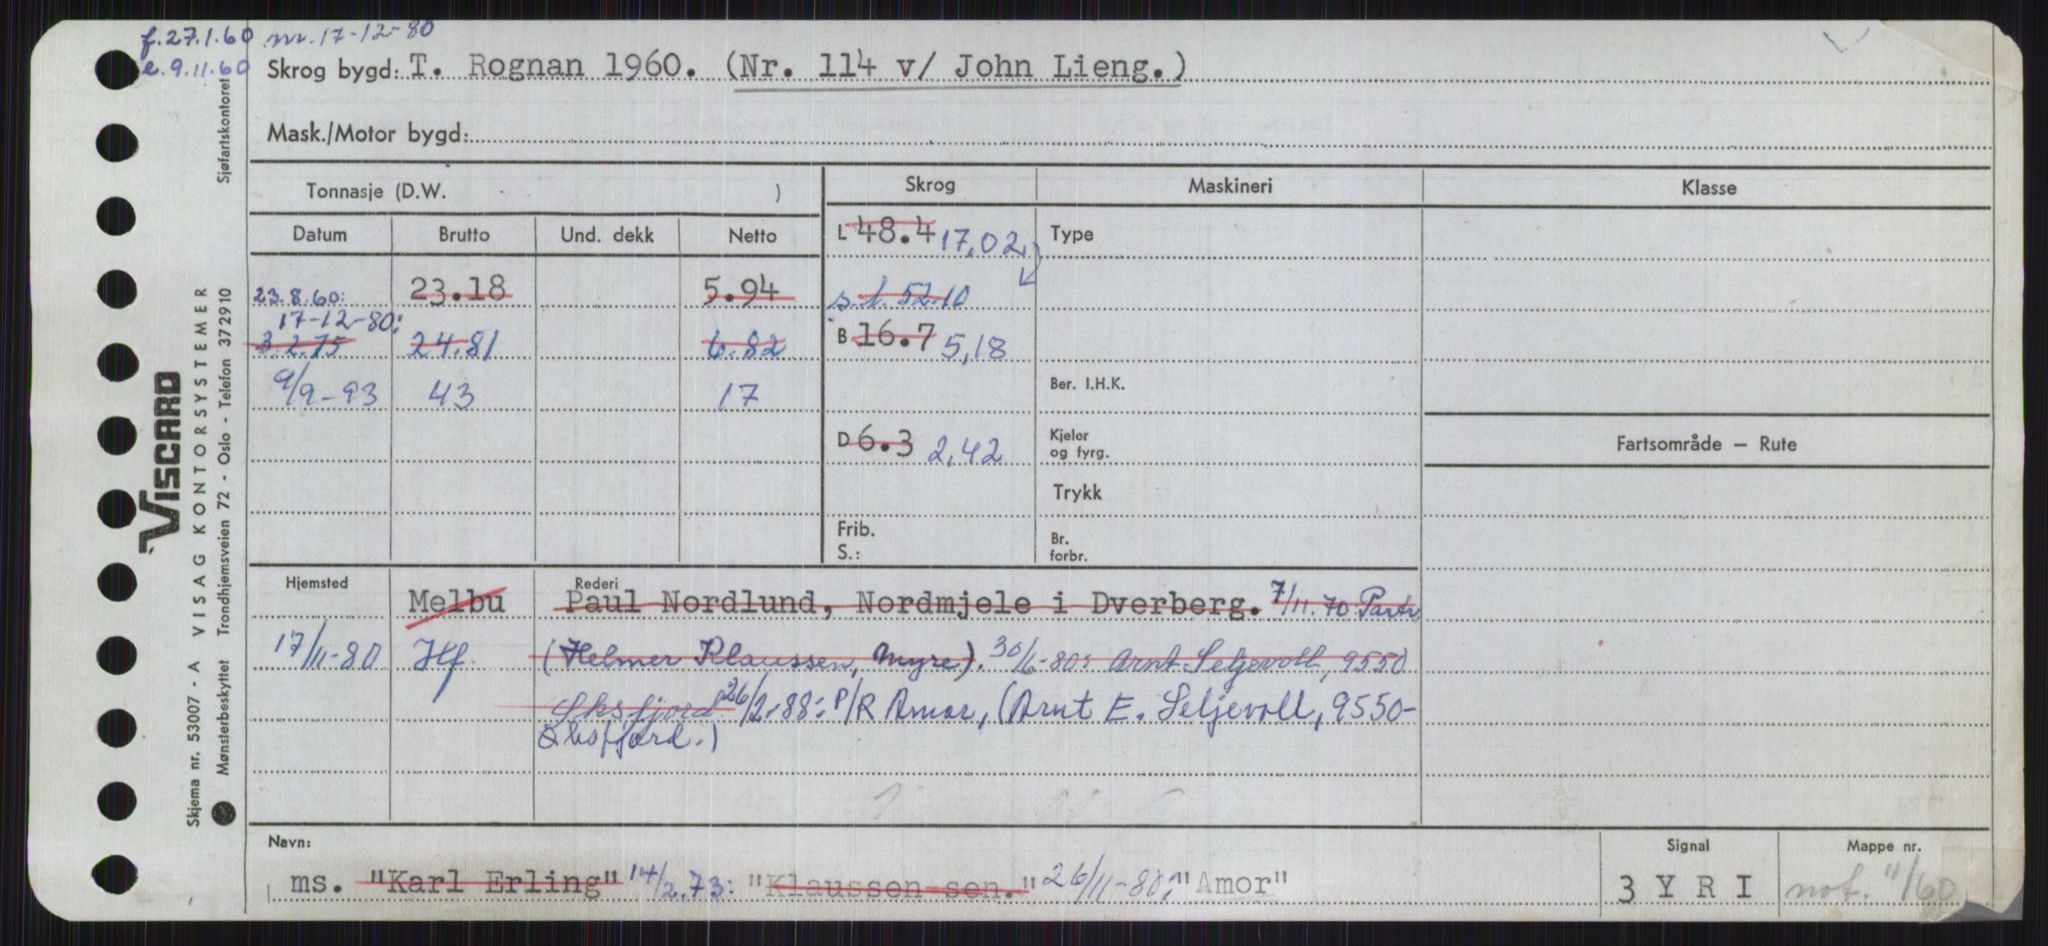 f. 27.1.60 m. 17-12-80
e. 9.11.60
Skrog bygd: T. Rognan 1960. (Nr. 114 v/ John Lieng.)
Mask./Motor bygd:
Sjøfartskontoret
Tonnasje (D.W. )
Skrog
Maskineri
Klasse
Datum Brutto Und. dekk Netto
L 48.4 17,02
Type
23.8.60: 23.18 5.94
s.l. 52.10
17-12-80:
3.2.75 24.81 6.82
B 16.7 5,18
9/9-93 43 17
Ber. I.H.K.
D 6.3 2,42
Kjeler
og fyrg.
Fartsområde — Rute
Trykk
Frib.
S.:
Br.
forbr.
Hjemsted
Rederi
Melbu Paul Nordlund, Nordmjele i Dverberg. 7/11.70 Partr
17/11-80 Hf. (Helmer Klaussen, Myre). 30/6-80: Arnt Seljevoll, 9550
Øksfjord 26/2-88: P/R Amor, (Arnt E. Seljevoll, 9550-
Øksfjord.)
Navn:
Signal
Mappe nr.
ms. "Karl Erling" 14/2.73: "Klaussen sen." 26/11-80: "Amor"
3 Y R I
not. 11/60
VISCARD
Skjema nr. 53007 - A VISAG KONTORSYSTEMER
Mønsterbeskyttet Trondhjemsveien 72 - Oslo - Telefon 37 29 10